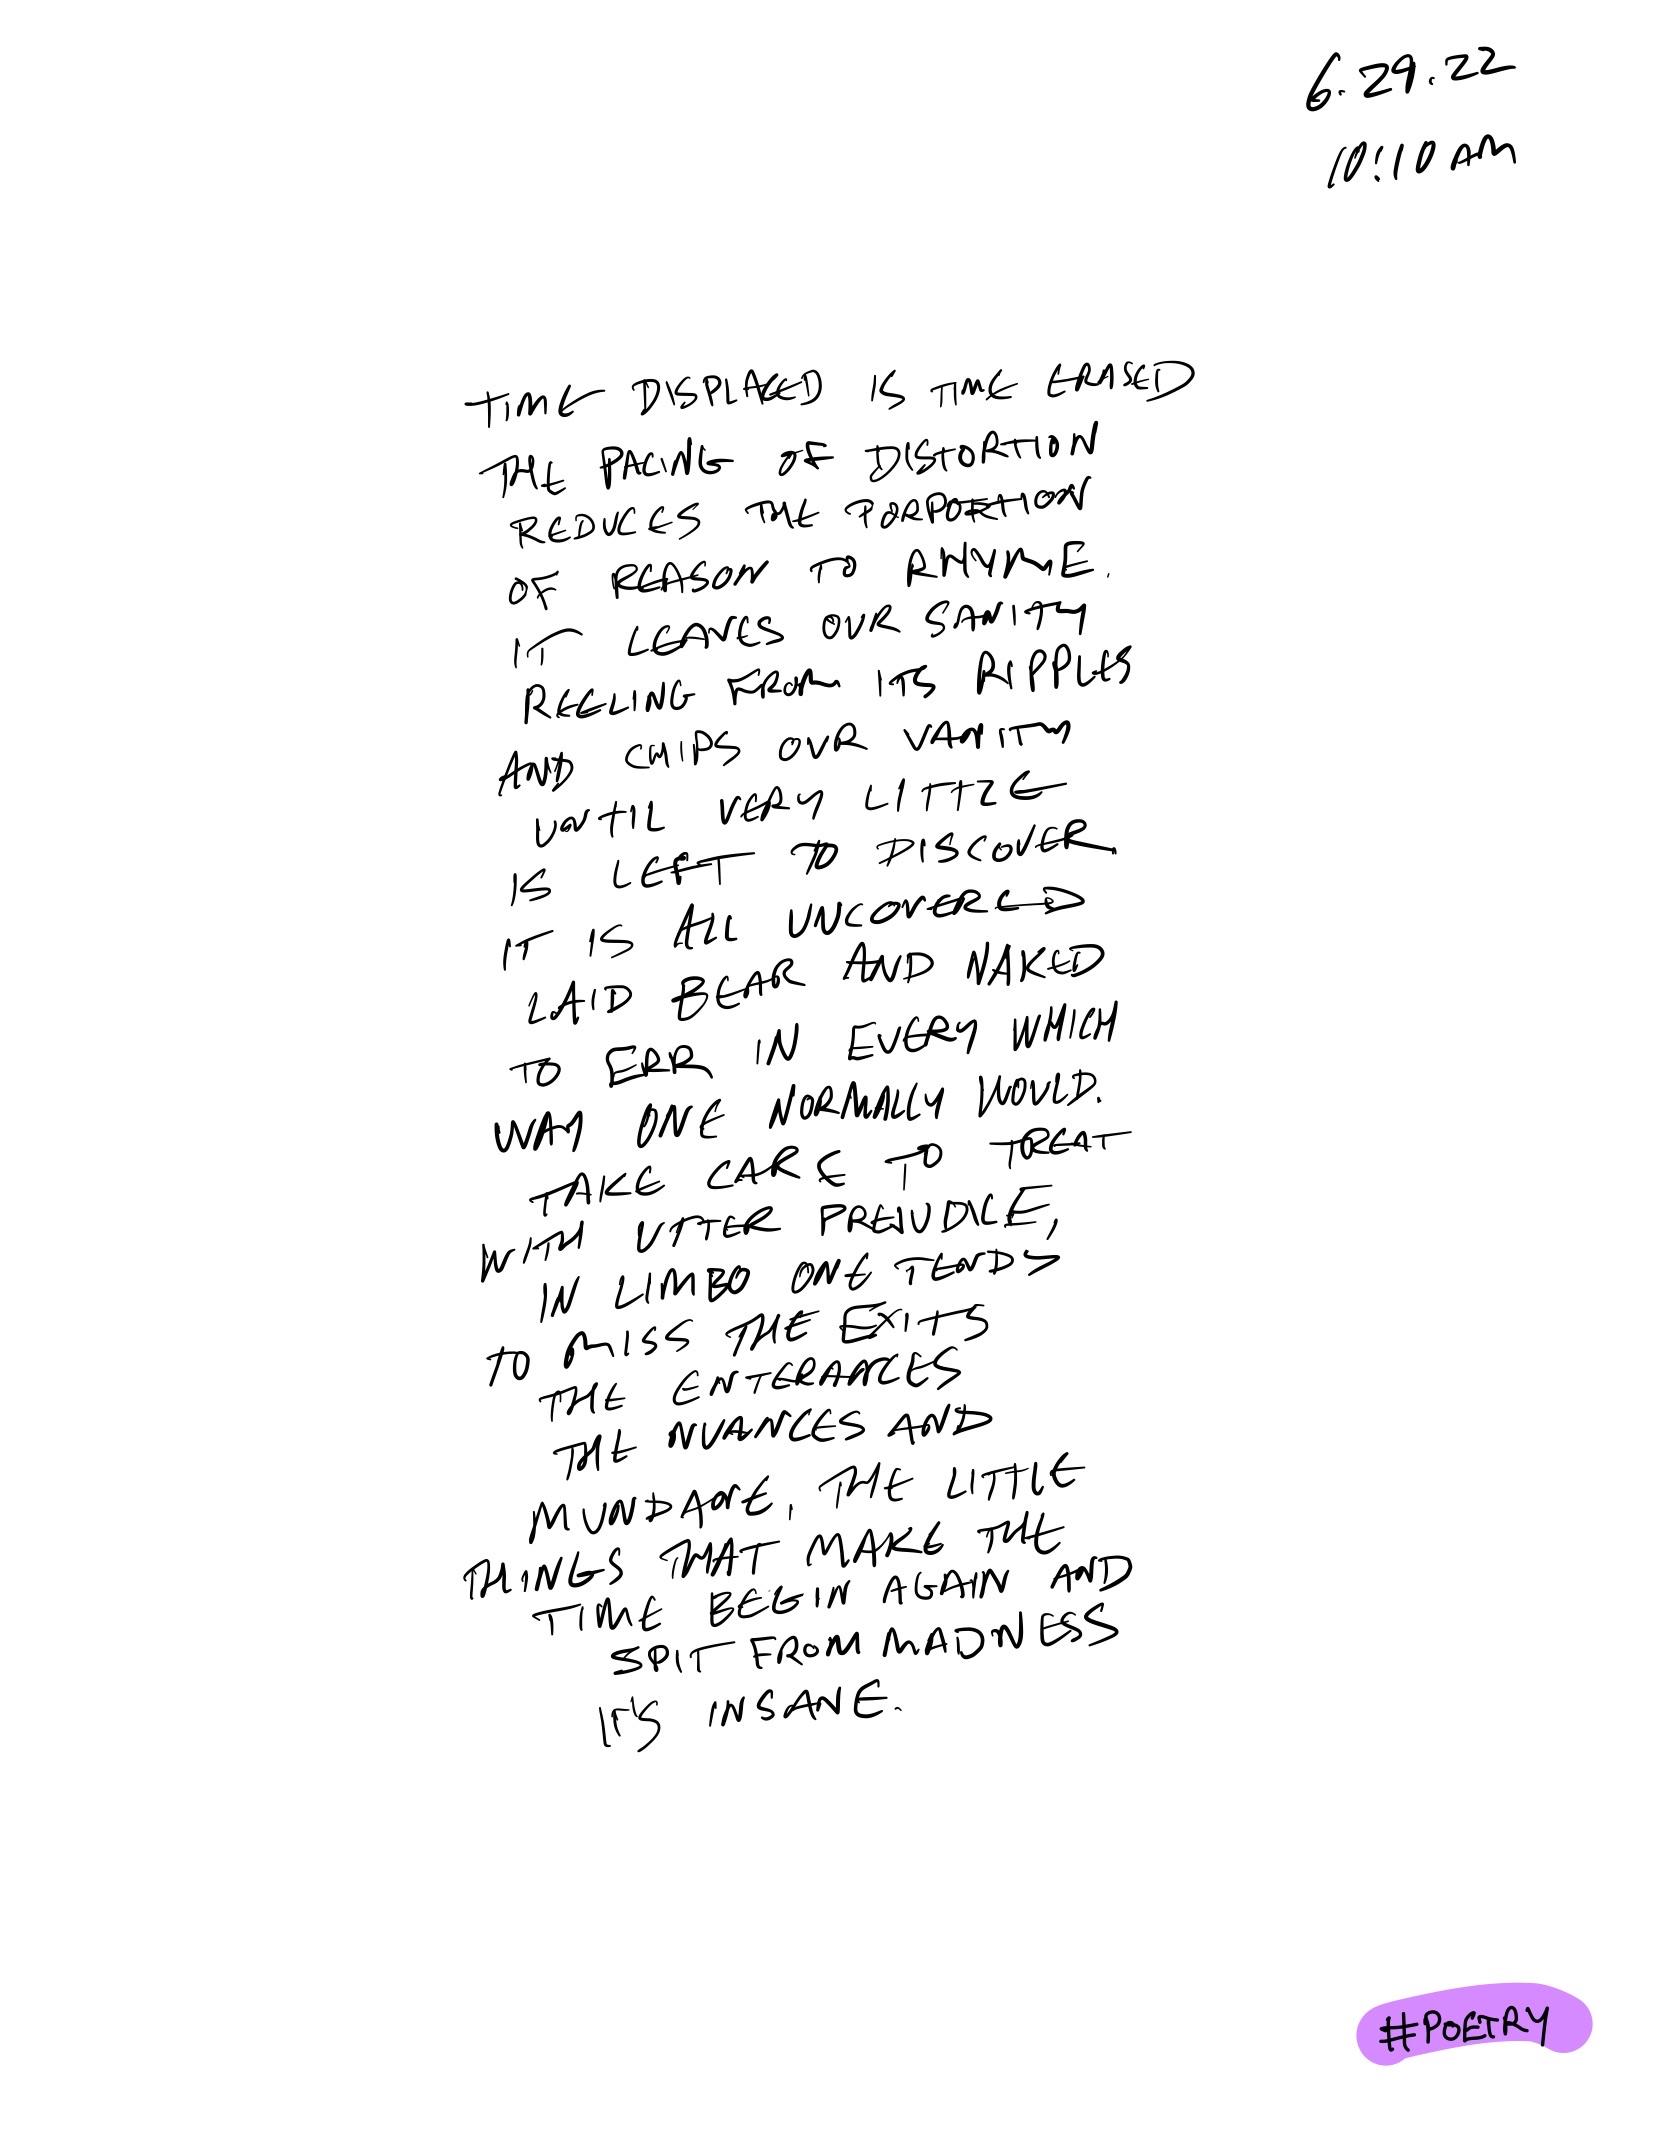 6.29.22
10:10 AM
TIME DISPLACED IS TIME ERASED
THE PACING OF DISTORTION
REDUCES THE PORPORTION
OF REASON TO RHYME.
IT LEAVES OUR SANITY
REELING FROM ITS RIPPLES
AND CHIPS OUR VANITY
UNTIL VERY LITTLE
IS LEFT TO DISCOVER
IT IS ALL UNCOVERED
LAID BEAR AND NAKED
TO ERR IN EVERY WHICH
WAY ONE NORMALLY WOULD.
TAKE CARE TO TREAT
WITH UTTER PREJUDICE,
IN LIMBO ONE TENDS
TO MISS THE EXITS
THE ENTERANCES
THE NUANCES AND
MUNDANE, THE LITTLE
THINGS THAT MAKE THE
TIME BEGIN AGAIN AND
SPIT FROM MADNESS
IT'S INSANE.
#POETRY